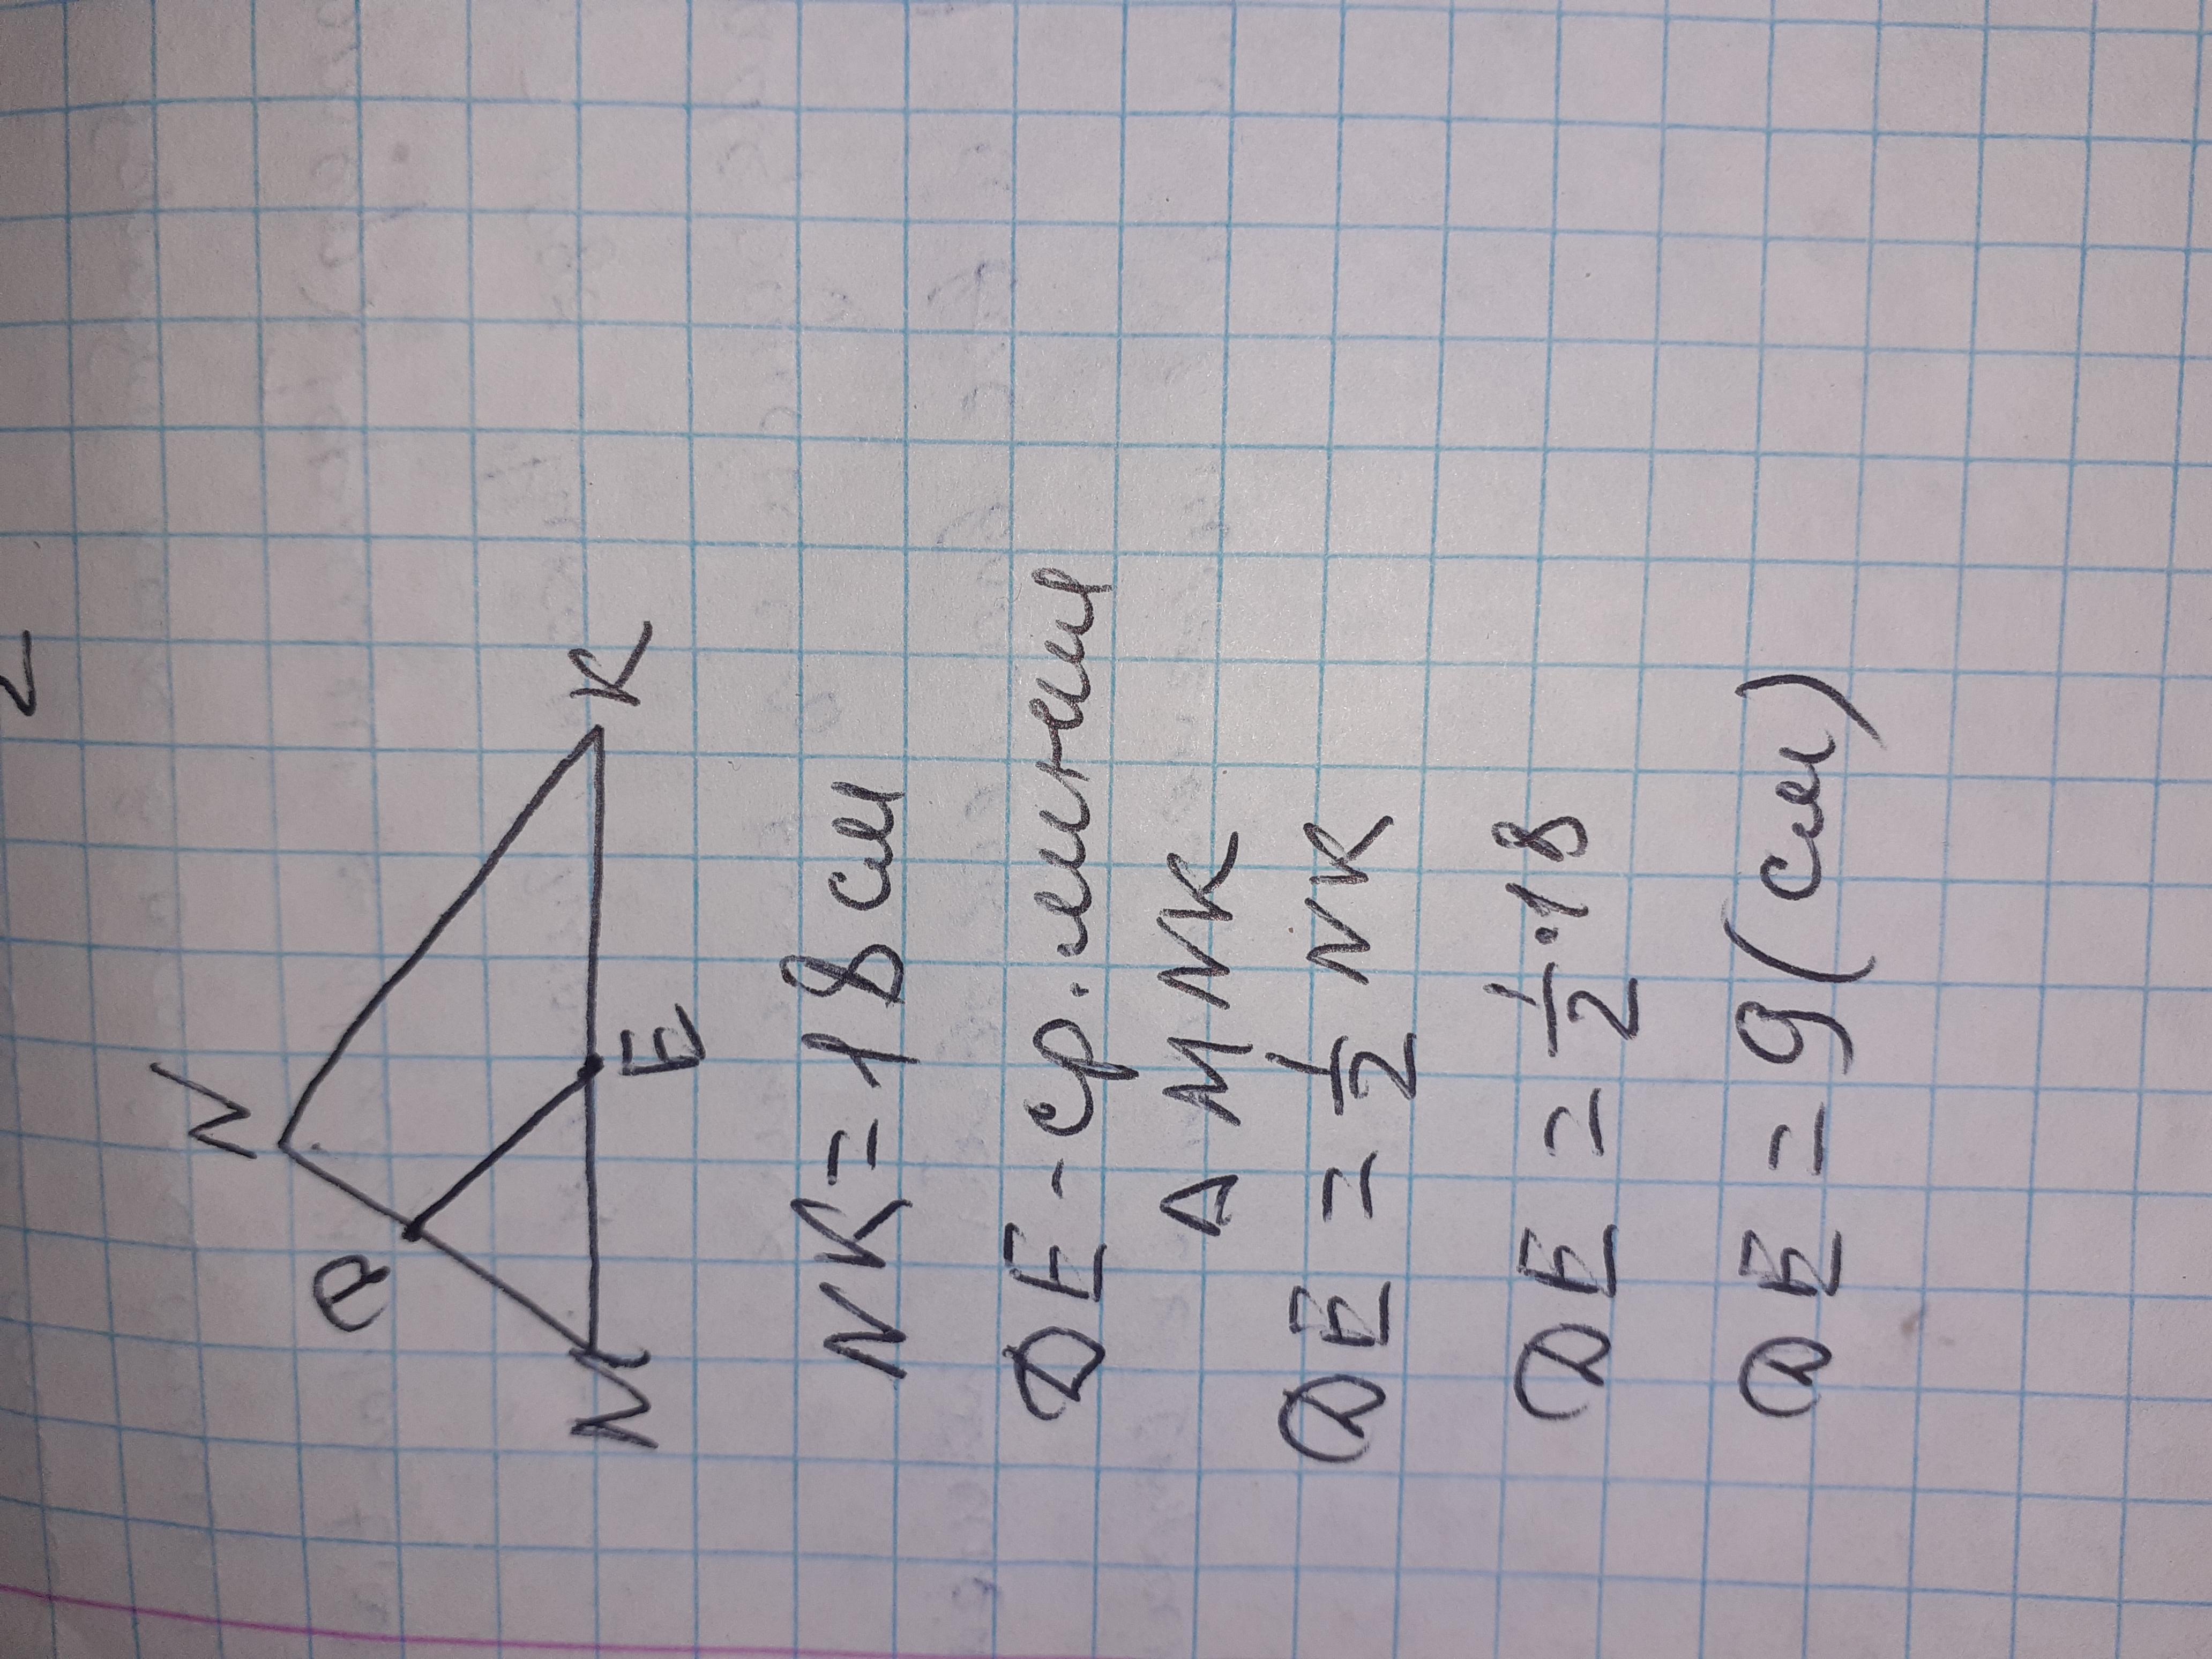 2
N
D
M
E
K
NK = 18 см
DE - ср. линия
Δ MNK
DE = 1/2 NK
DE = 1/2 · 18
DE = 9 (см)